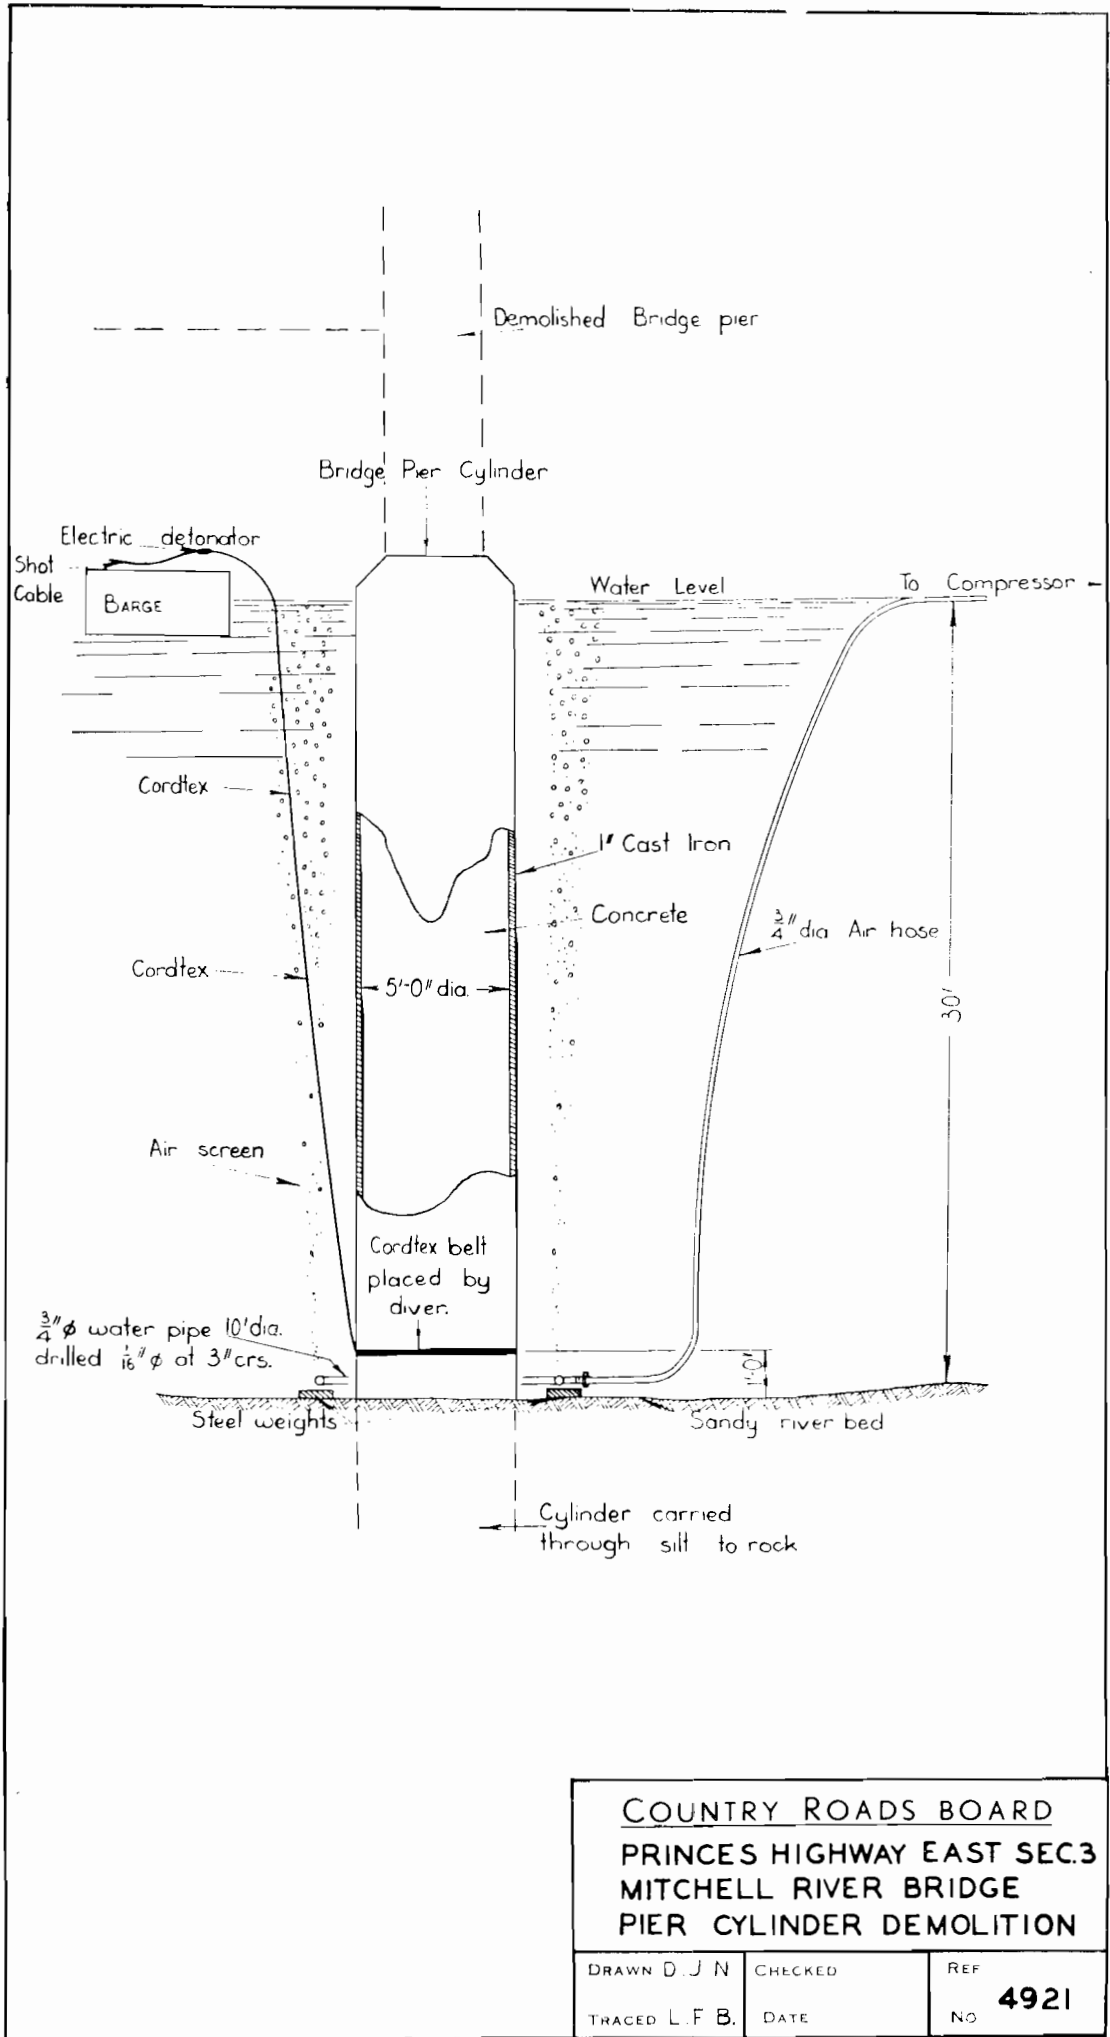 Demolished Bridge pier
Bridge Pier Cylinder
Electric detonator
Shot
Cable
BARGE
Water Level
To Compressor
Cordtex
1" Cast Iron
Concrete
3/4" dia Air hose
Cordtex
5'-0" dia.
30'
Air screen
Cordtex belt
placed by
diver.
3/4" φ water pipe 10' dia.
drilled 1/16" φ at 3" crs.
1'-0"
Steel weights
Sandy river bed
Cylinder carried
through silt to rock
COUNTRY ROADS BOARD
PRINCES HIGHWAY EAST SEC.3
MITCHELL RIVER BRIDGE
PIER CYLINDER DEMOLITION
DRAWN D.J N
CHECKED
REF
TRACED L.F B.
DATE
NO 4921